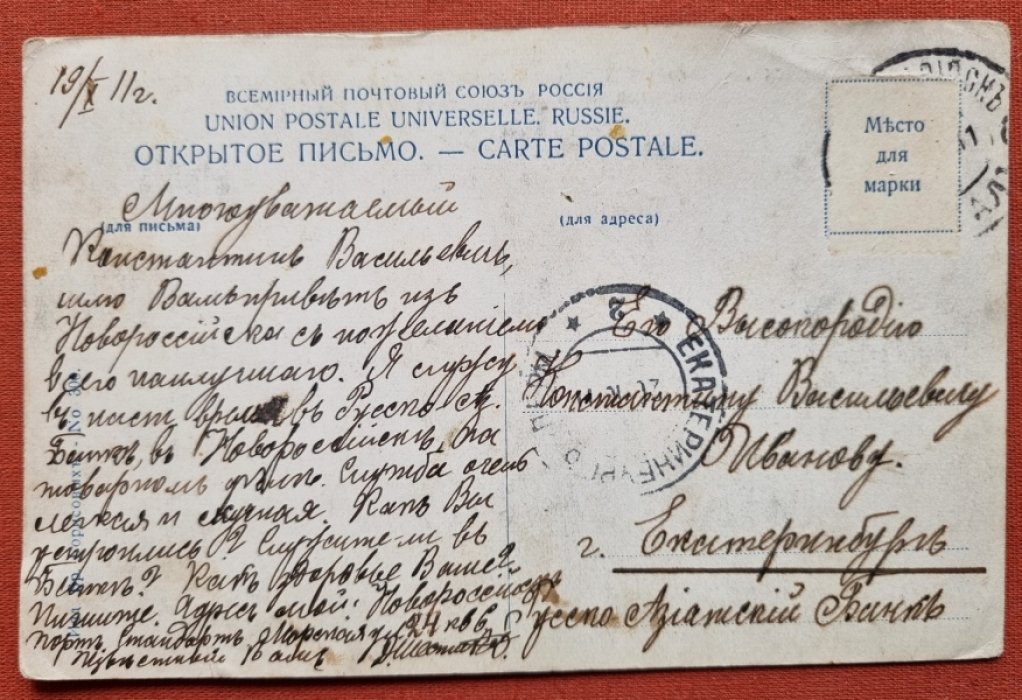 19/X 11 г.
ВСЕМІРНЫЙ ПОЧТОВЫЙ СОЮЗЪ РОССІЯ
UNION POSTALE UNIVERSELLE. RUSSIE.
ОТКРЫТОЕ ПИСЬМО. — CARTE POSTALE.
Мѣсто
для
марки
(для письма)
(для адреса)
Многоуважаемый
Константинъ Васильевичъ,
шлю Вамъ привѣтъ изъ
Новороссійска съ пожеланіемъ
всего наилучшаго. Я служу
въ наст. время въ Русско Аз.
Банкѣ, въ Новороссійскѣ, на
товарномъ отдѣл. Служба очень
легкая и скучная. Какъ Вы
устроились? Служите-ли въ
Банкѣ? Какъ здоровье Ваше?
Пишите. Адресъ мой: Новороссійскъ
Портъ Стандартъ Морская ул. 24 кв 6.
Извѣстный Вамъ
ЕКАТЕРИНБУРГЪ
Его Высокородію
Константину Васильевичу
Иванову.
г. Екатеринбургъ
Русско Азіатскій Банкъ